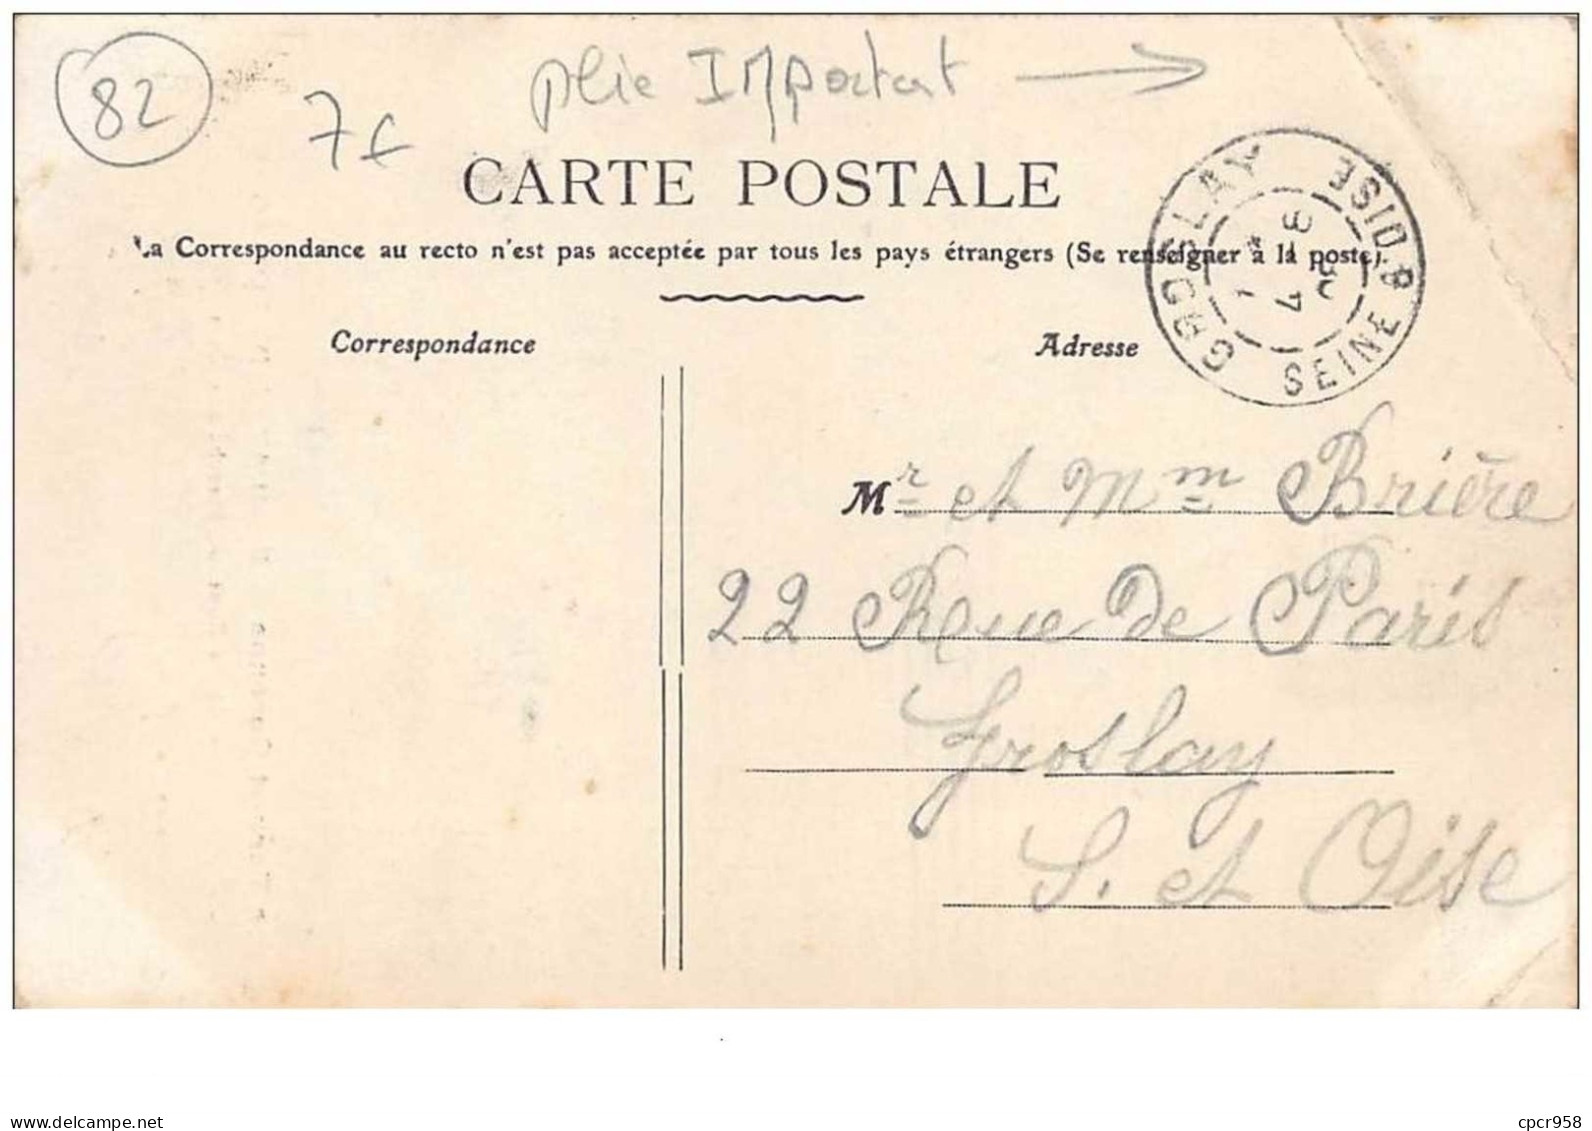 82
7€
plie Important
CARTE POSTALE
La Correspondance au recto n'est pas acceptée par tous les pays étrangers (Se renseigner à la poste).
GROSLAY SEINE & OISE
Correspondance
Adresse
Mr et Mm Brière
22 Rue de Paris
Groslay
S. et Oise
www.delcampe.net
cpcr958